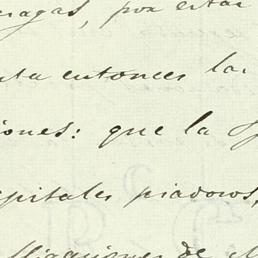 magas, por estar
nta entonces las
iones: que la
spitales piadosos,
lligaciones de